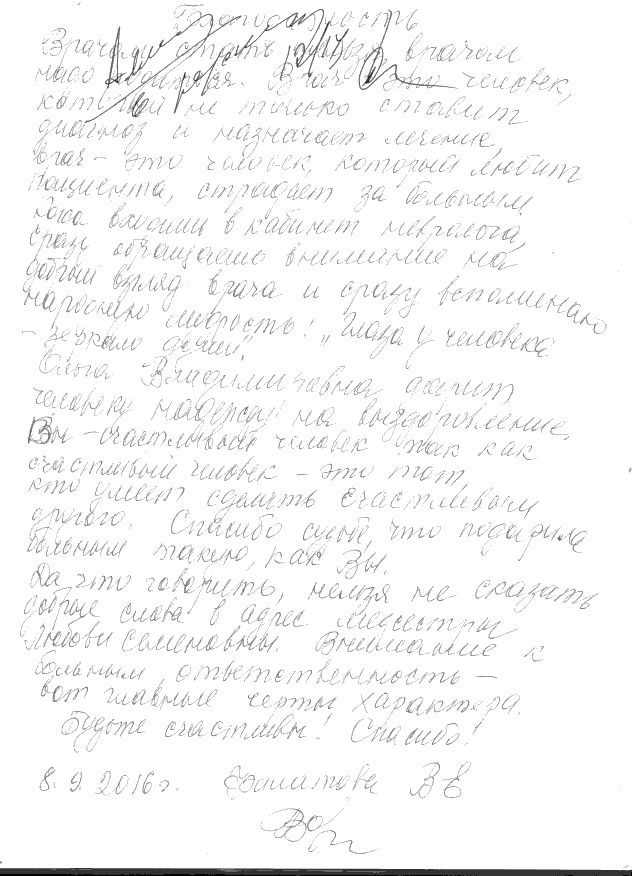 Благодарность
Врачом стать нельзя, врачом
надо родиться. Врач это человек,
который не только ставит
диагноз и назначает лечение,
врач – это человек, который любит
пациента, страдает за больным
Когда входишь в кабинет невролога,
сразу обращаешь внимание на
добрый взгляд врача и сразу вспоминаю
народную мудрость: „Глаза у человека
– зеркало души".
Ольга Владимировна дарит
человеку надежду на выздоровление.
Вы – счастливый человек так как
счастливый человек – это тот,
кто умеет сделать счастливым
другого. Спасибо судьбе, что подарила
больным такую, как Вы.
Да что говорить, нельзя не сказать
добрые слова в адрес медсестры
Любови Семеновны. Внимание к
больным, ответственность –
вот главные черты характера.
Будьте счастливы! Спасибо!
8. 9. 2016 г. В Е